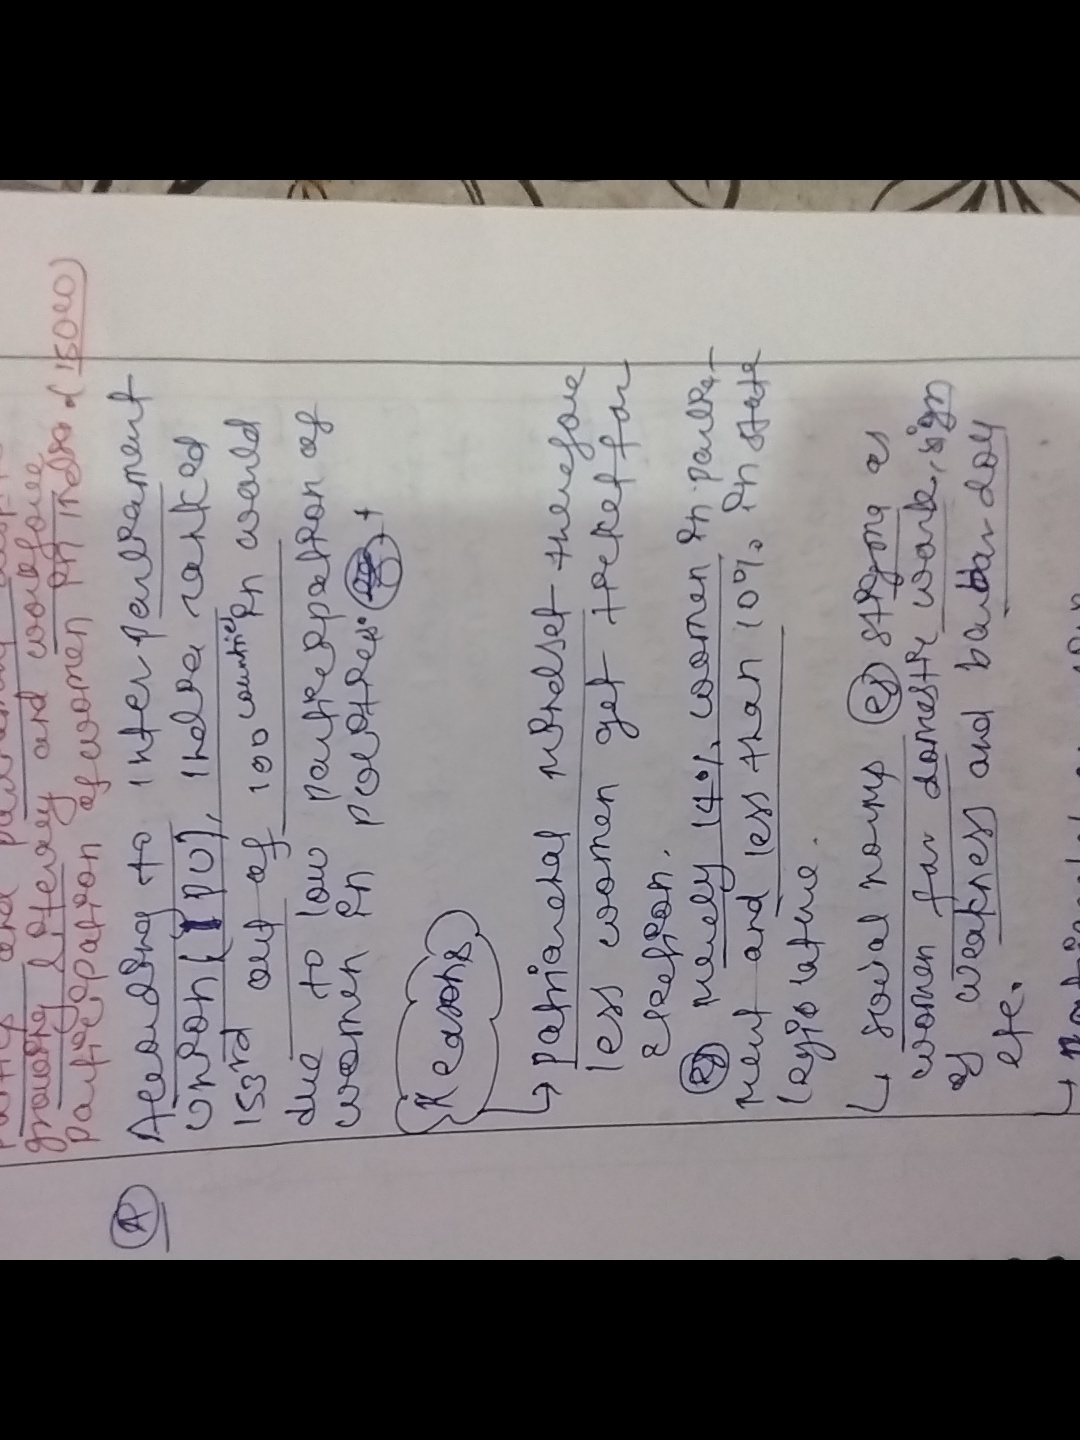 growing literacy and workforce
participation of women in India. (150W)
(A) According to inter parliament
Union (IPU), India ranked
153rd out of 100 countries in world
due to low participation of
women in politics. +
Reasons
↳ patriarchal mindset therefore
less women get ticket for
Election.
eg merely 14% women in parlia-
ment and less than 10% in state
legislature.
↳ social norms eg strong as
women for domestic work, sign
of weakness and
etc.
↳